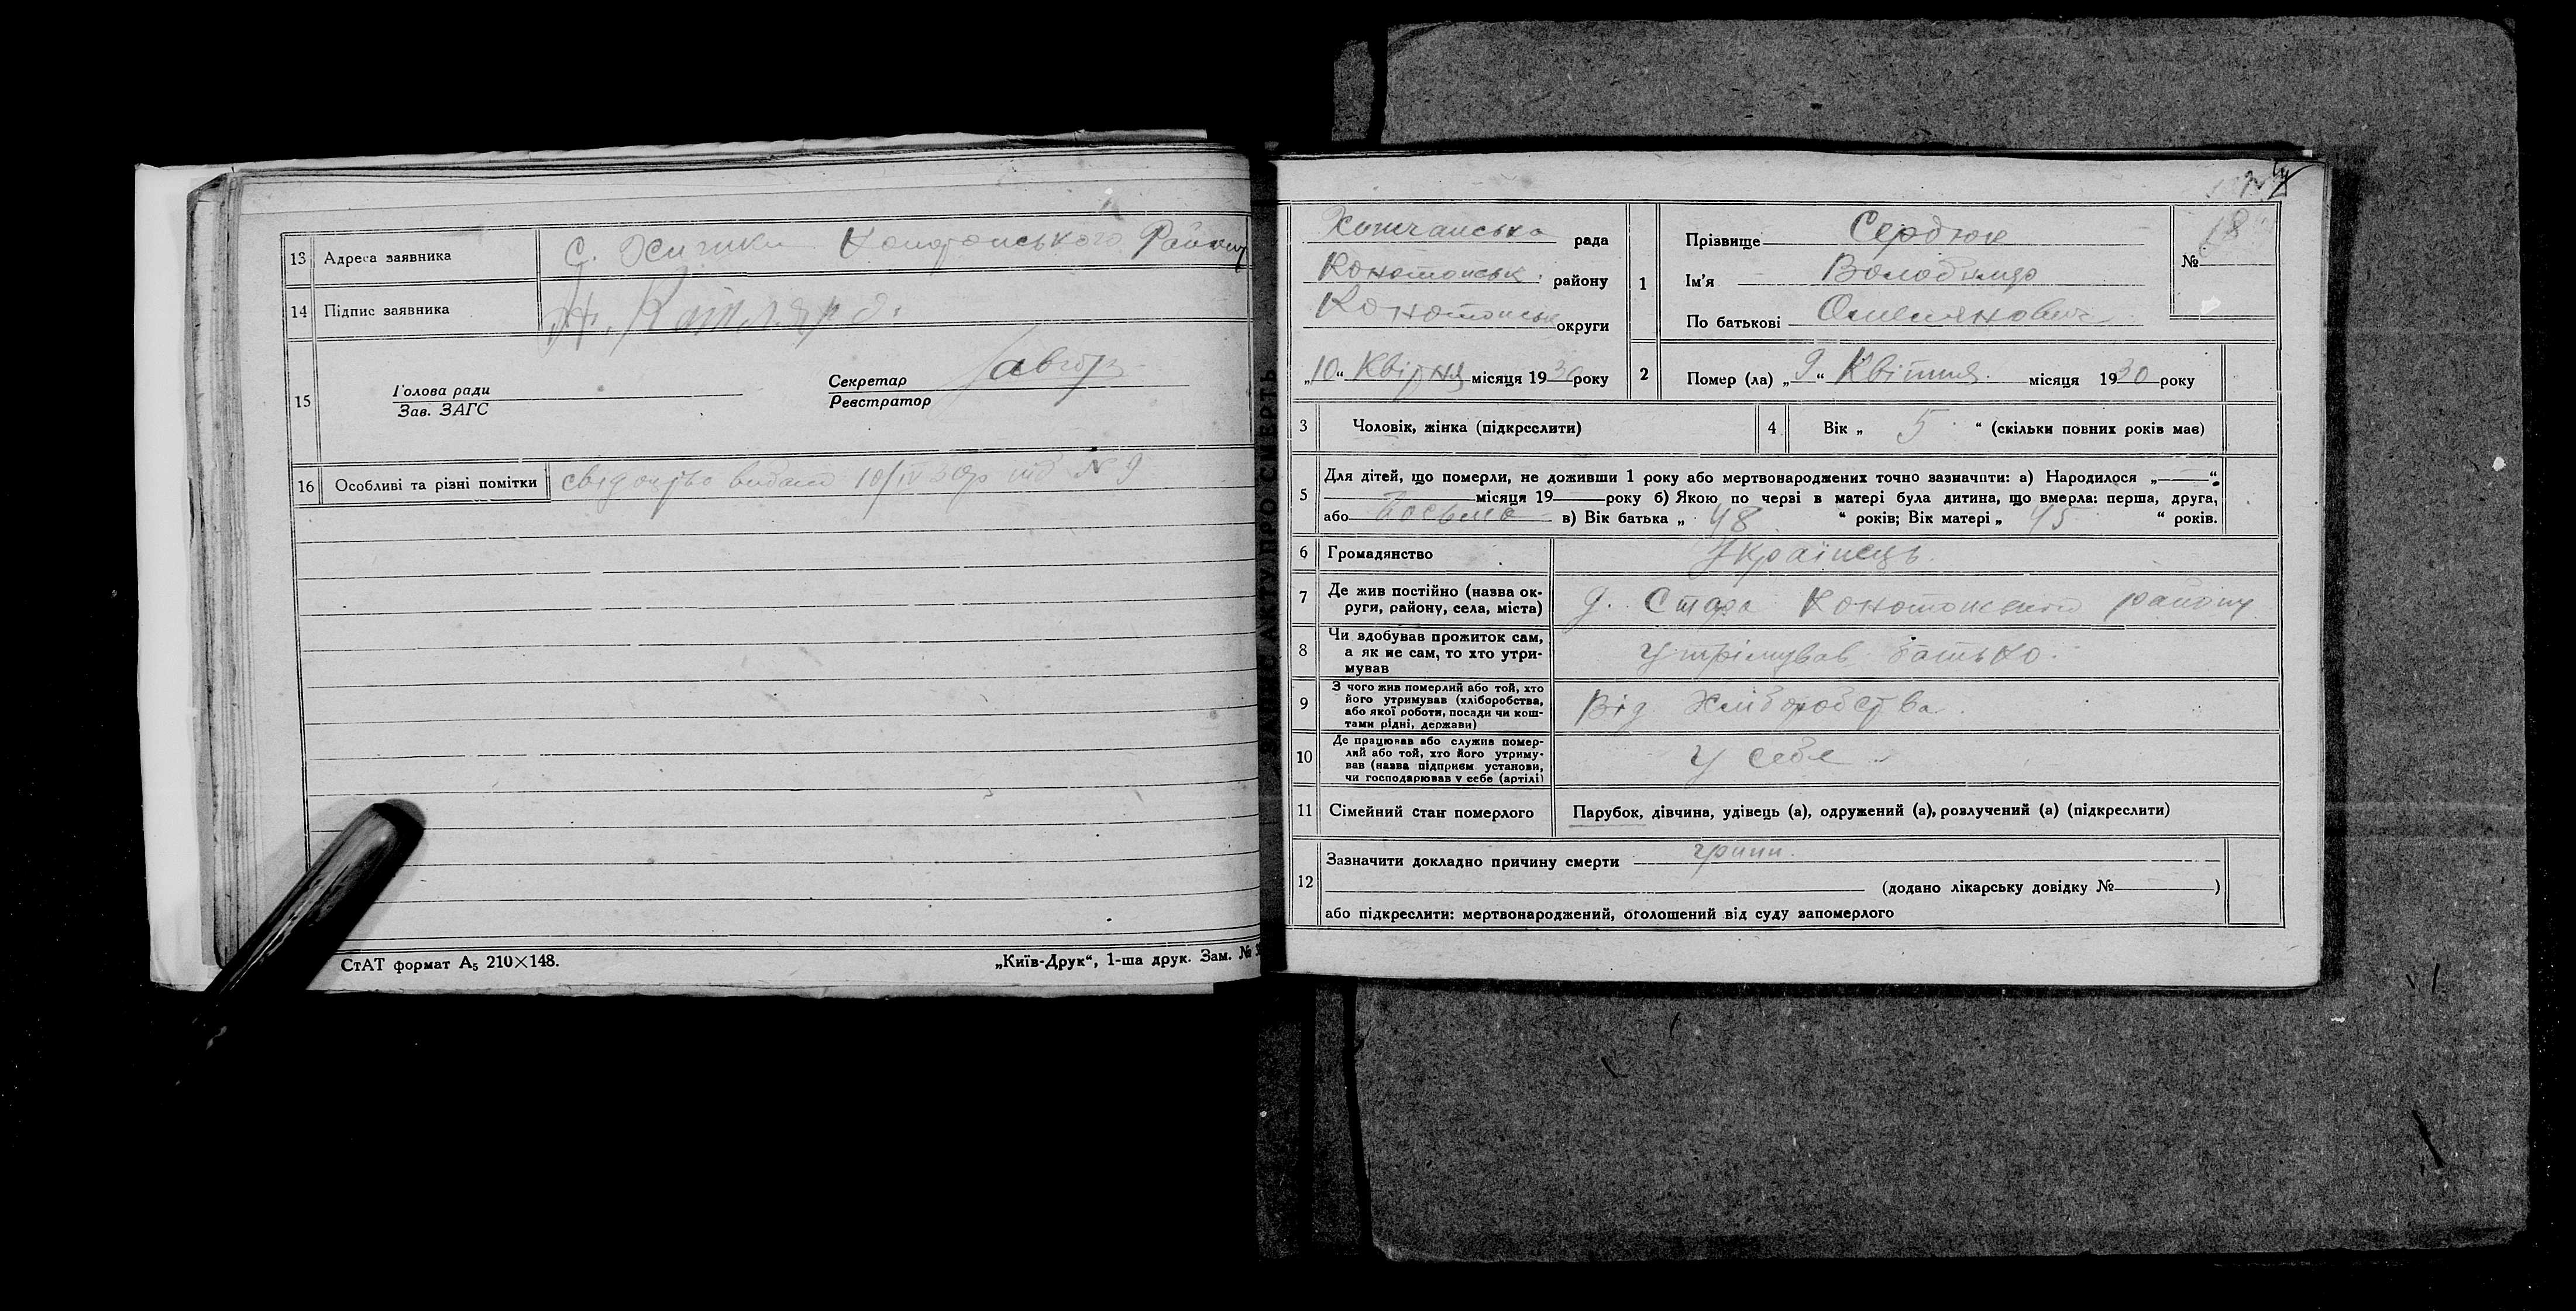 13 Адреса заявника С. Хижки Конотопського Району
14 Підпис заявника
15 Голова ради
Зав. ЗАГС
Секретар
Реєстратор
16 Особливі та різні помітки свідоцтво видано 10/IV 30р під № 9
СтАТ формат А₅ 210×148.
„Київ-Друк“, 1-ша друк. Зам. №
рада
Конотопськ. району
Конотопськ округи
„10“ Квітня місяця 1930 року
1 Прізвище Сердюк
Ім'я Володимир
По батькові Омелянович
№ 18
2 Помер (ла) „9“ Квітня місяця 1930 року
3 Чоловік, жінка (підкреслити)
4 Вік „ 5 “ (скільки повних років має)
5 Для дітей, що померли, не доживши 1 року або мертвонароджених точно зазначити: а) Народилося „ “
місяця 19 року б) Якою по черзі в матері була дитина, що вмерла: перша, друга,
або восьма в) Вік батька „ 48 “ років; Вік матері „ 45 “ років.
6 Громадянство Українець
7 Де жив постійно (назва ок-
руги, району, села, міста) Стара Конотопського району
8 Чи здобував прожиток сам,
а як не сам, то хто утри-
мував утрімував батько.
9 З чого жив померлий або той, хто
його утримував (хліборобства,
або якої роботи, посади чи кош-
тами рідні, держави) Від Хліборобства
10 Де працював або служив помер-
лий або той, хто його утриму-
вав (назва підприєм установи,
чи господарював у себе (артілі) у себе
11 Сімейний стан померлого Парубок, дівчина, удівець (а), одружений (а), розлучений (а) (підкреслити)
12 Зазначити докладно причину смерти грип.
(додано лікарську довідку № )
або підкреслити: мертвонароджений, оголошений від суду запомерлого